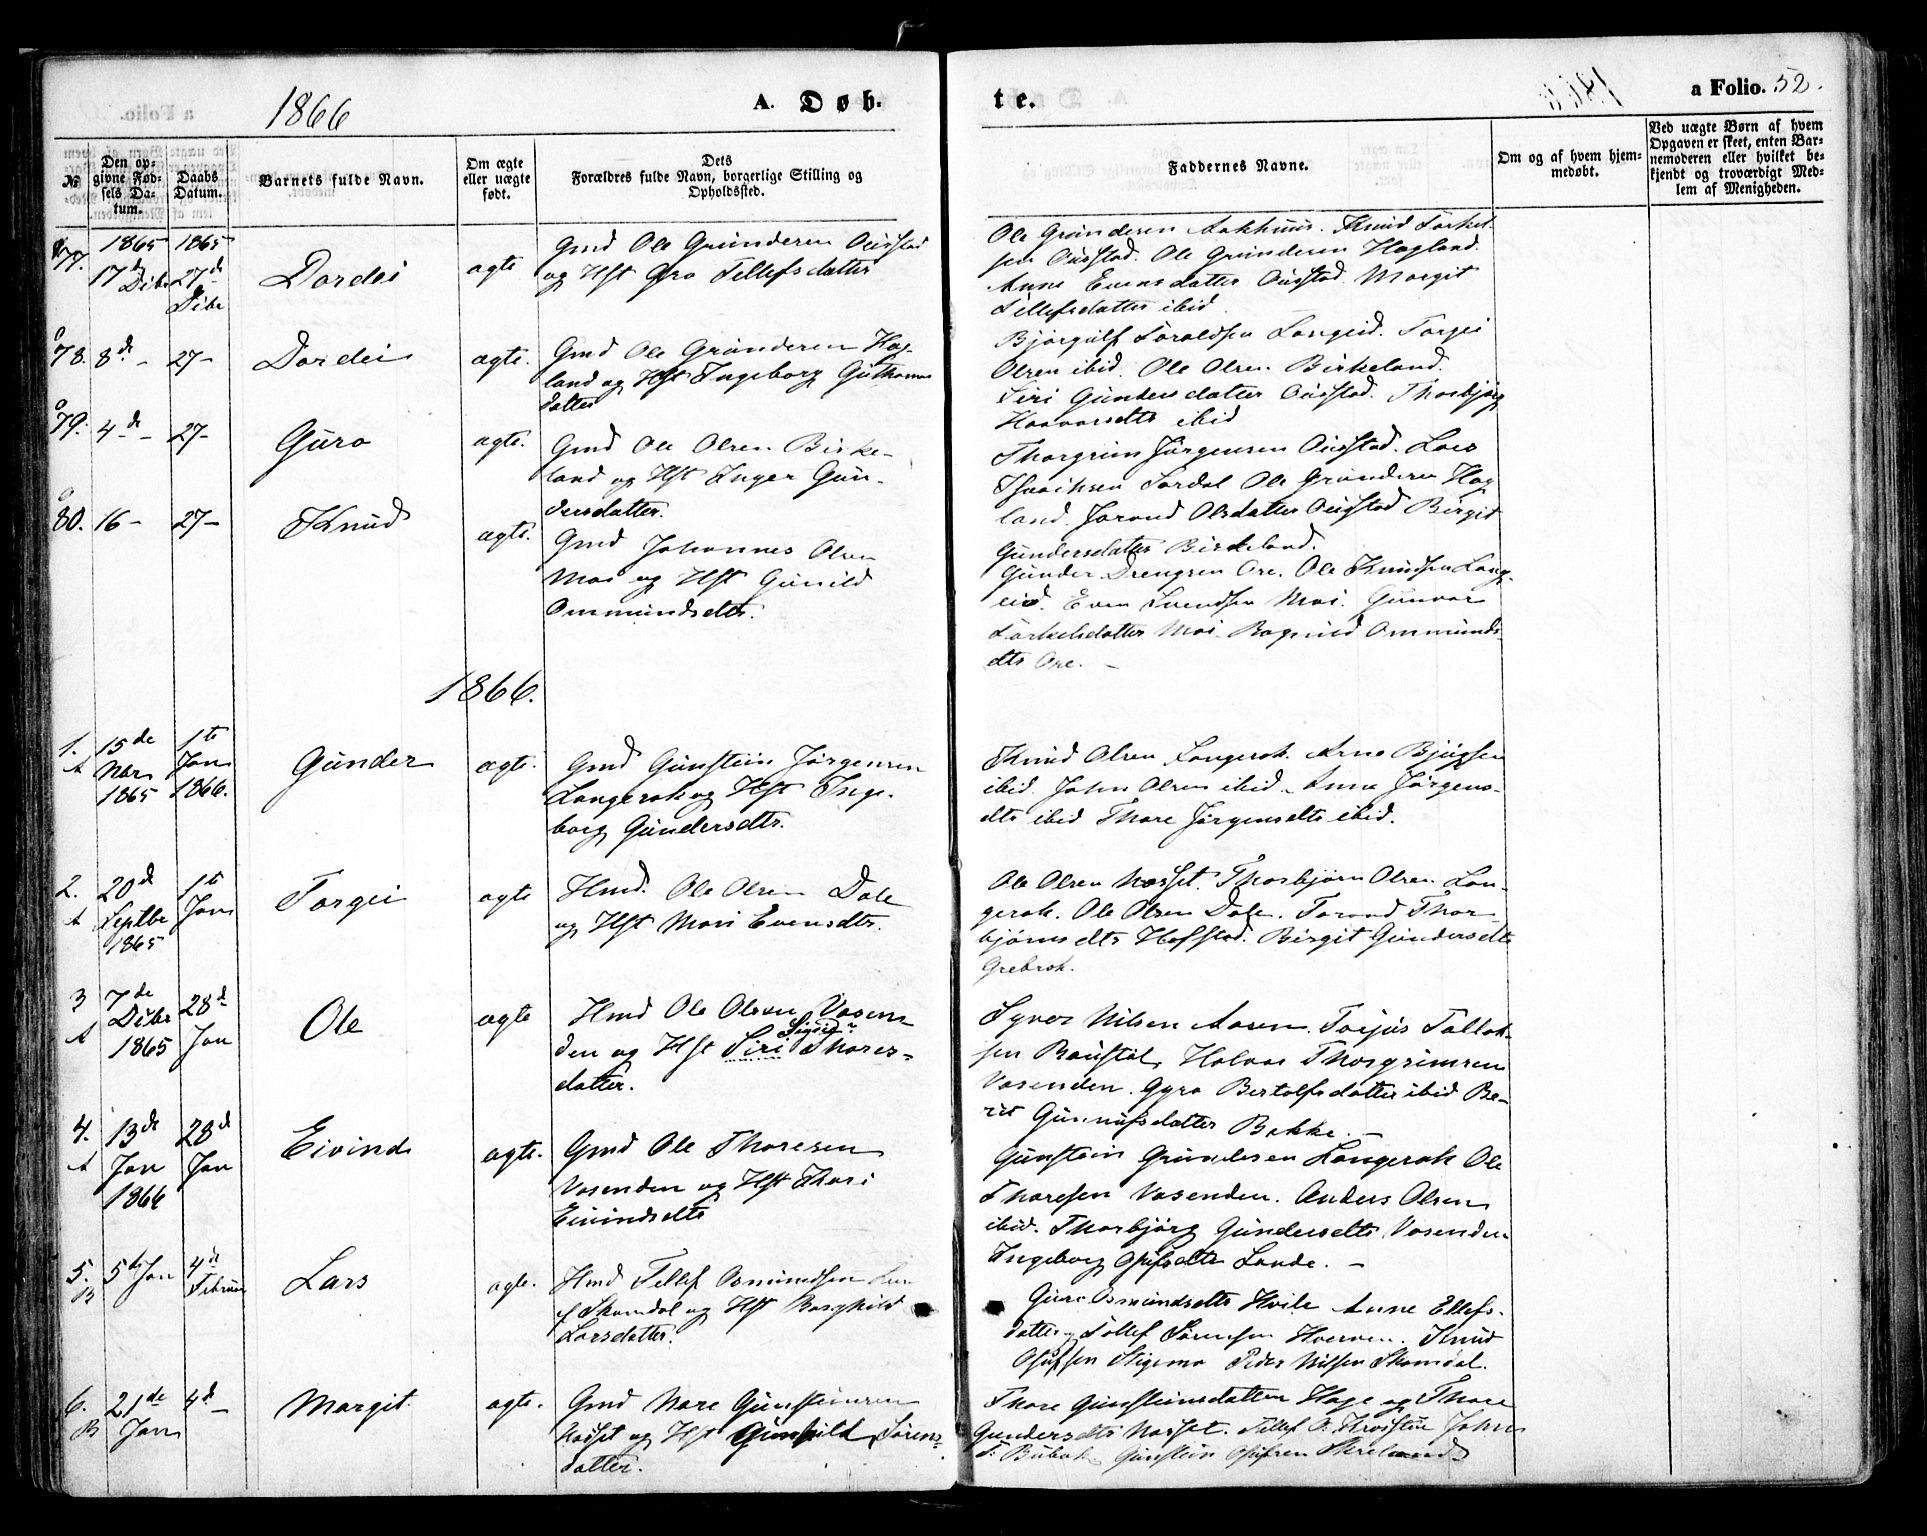 1866
A. Døb-
te.
a Folio. 52.
№
Den op-
givne Fød-
sels Da-
tum.
Daabs
Datum.
Barnets fulde Navn.
Om ægte
eller uægte
født.
Dets
Forældres fulde Navn, borgerlige Stilling og
Opholdssted.
Faddernes Navne.
Om og af hvem hjem-
medøbt.
Ved uægte Børn af hvem
Opgaven er skeet, enten Bar-
nemoderen eller hvilket be-
kjendt og troværdigt Med-
lem af Menigheden.
77. 1865 17de Dcbr 1865 27de Dcbr Dordei ægte
Gmd Ole Gundersen Ousstad
og Hst Gro Tellefsdatter
Ole Gundersen Aakhuus. Knud Torkel-
sen Ousstad. Ole Gundersen Hagland.
Anne Evensdatter Ousstad. Margit
Tellefsdatter ibid.
78. 8de - 27- Dordei ægte.
Gmd Ole Gundersen Hag-
land og Hst Ingeborg Guthorms
datter
Bjørgulf Toroldsen Langeid. Torgei
Olsen ibid. Ole Olsen Birkeland.
Siri Gundersdatter Ousstad. Thorbjørg
Haavorsdtr ibid
79. 4de - 27- Guro ægte.
Gmd Ole Olsen Birke-
land og Hst Inger Gun-
dersdatter.
Thorgrim Jørgensen Ousstad. Lars
Isaaksen Tordal Ole Gundersen Hag
land. Jorand Olsdatter Ousstad Birgit
Gundersdatter Birkeland.
80. 16- 27- Knud ægte.
Gmd Johannes Olsen
Moi og Hst Gunild
Ommundsdtr.
Gunder Drengsen Ose. Ole Knudsen Lang-
eid. Even Svendsen Moi. Gunvor
Torkelsdatter Moi. Ragnild Ommunds
dtr Ose. -
1866.
1. A 15de Nbr 1865 1te Jan 1866. Gunder ægte.
Gmd Gunstein Jørgensen
Langerak og Hst Inge-
borg Gundersdtr.
Knud Olsen Langerak. Arne Bjugsen
ibid. John Olsen ibid. Anne Jørgens-
dtr ibid Thore Jørgensdtr ibid.
2. A 20de Septbr 1865 1te Jan Torgei ægte
Hmd. Ole Olsen Dale
og Hst Mari Evensdtr.
Ole Olsen Næsset. Thorbjørn Olsen Lan-
gerak. Ole Olsen Dale. Torand Thor-
bjørnsdtr Hofstad. Birgit Gundersdtr
Grebrok.
3 A 7de Dcbr 1865 28de Jan Ole ægte
Hmd Ole Olsen Vasen-
den og Hst Siri Thores-
Sigrid?
datter.
Syver Nilsen Aasen. Torjus Tallak-
sen Baustøl, Halvor Thorgrimsen
Vasenden. Gyro Bertolfsdatter ibid Be-
rit Gunnufsdatter Bakke. -
4. A 13de Jan 1866 28de Jan Eivind ægte.
Gmd Ole Thoresen
Vasenden og Hst Thori
Eivindsdtr
Gunstein Gundersen Langerak Ole
Thoresen Vasenden. Anders Olsen
ibid. Thorbjørg Gundersdtr. Vasenden
Ingeborg Osufsdtr Lande. -
5. B 5te Jan 4de Februar Lars ægte.
Hmd Tellef Osmundsen
Skomdal og Hst Borghild
Larsdatter.
Guro Osmundsdtr Hvile Anne Ellefs-
datter, Tellef Sørensen Hverven. Knud
Osufsen Stigemo Peder Nilsen Skomdal.
6. B 21de Jan 4de - Margit. ægte.
Gmd Nare Gunsteinsen
Næsset og Hst Gunhild Sørens-
datter.
Thore Gunsteinsdatter Hage og Thore
Gundersdtr Næsset. Tellef O. Krossten John
T. Bubak Gunstein Osufsen Skreland